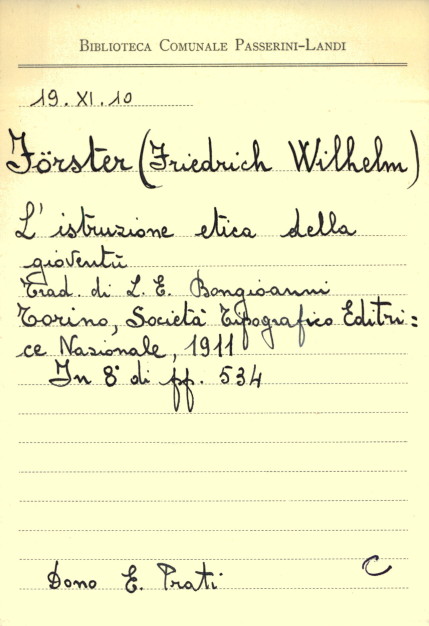 BIBLIOTECA COMUNALE PASSERINI-LANDI
19.XI.10
Förster (Friedrich Wilhelm)
L'istruzione etica della
gioventù
Trad. di L. E. Bongioanni
Torino, Società Tipografico Editri=
ce Nasionale, 1911
In 8° di pp. 534
Dono E. Prati
C